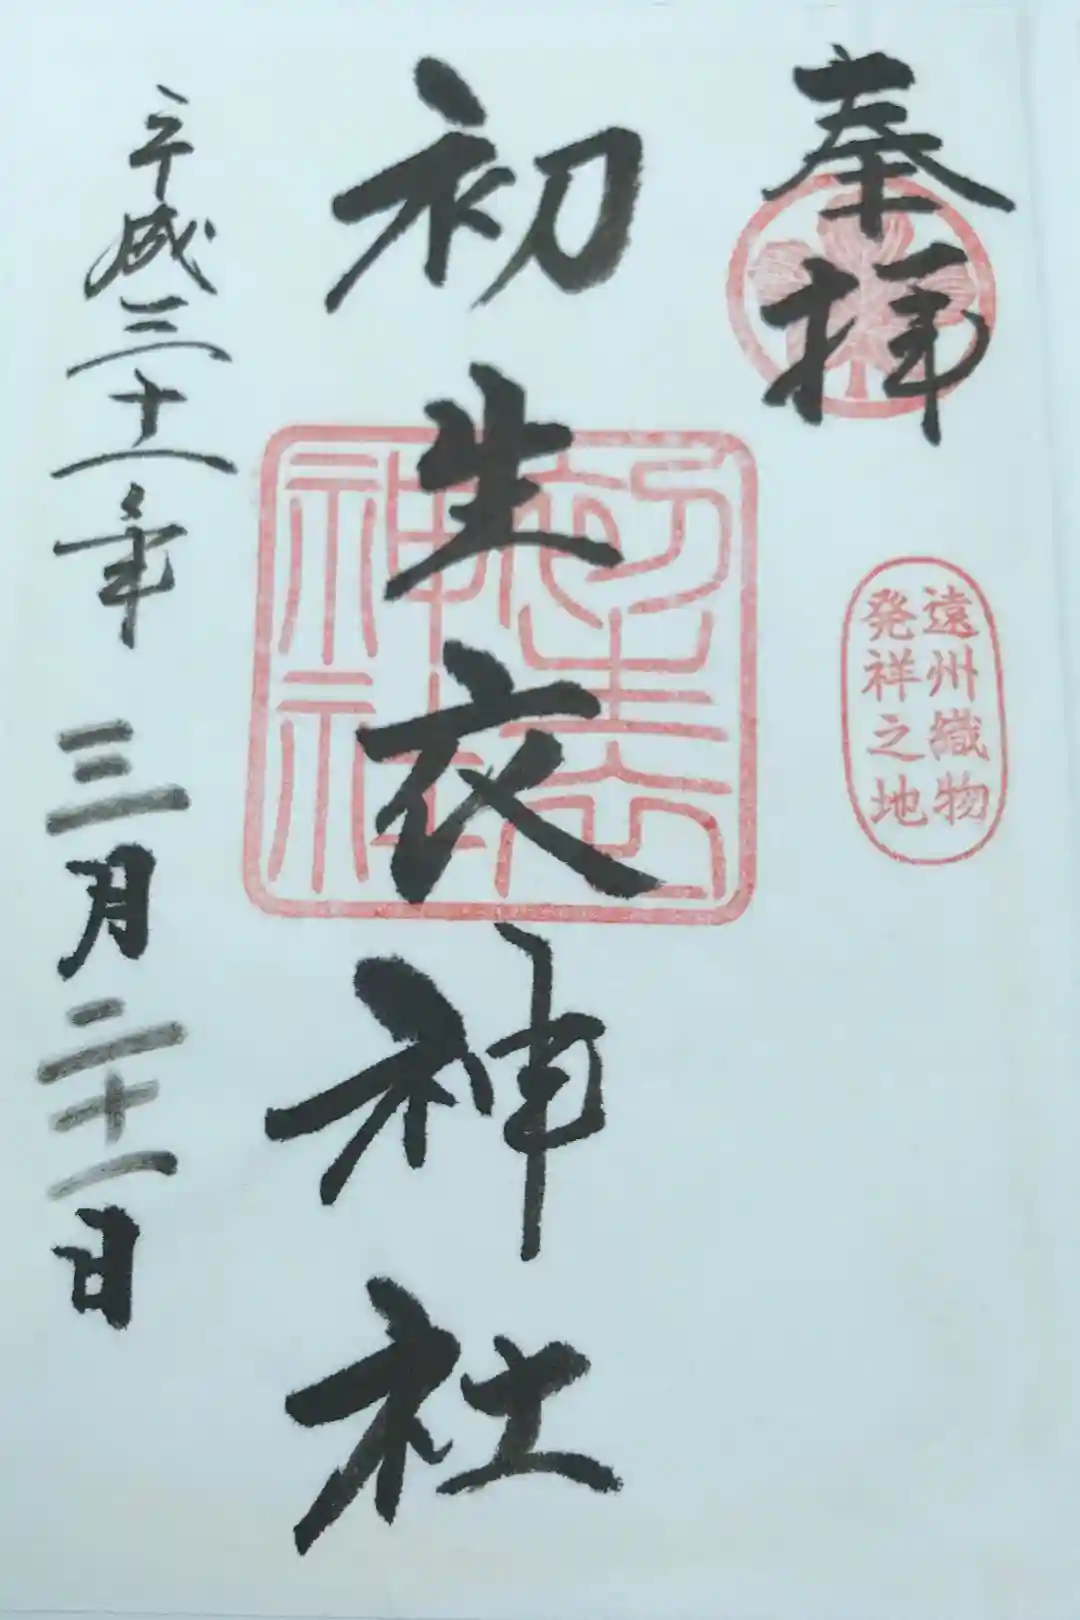 奉拝
遠州織物
発祥之地
初生衣神社
初生衣
神社
平成三十一年 三月二十一日